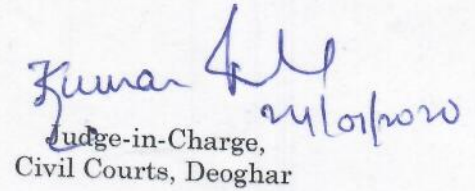 Kumar
Judge-in-Charge,
Civil Courts, Deoghar